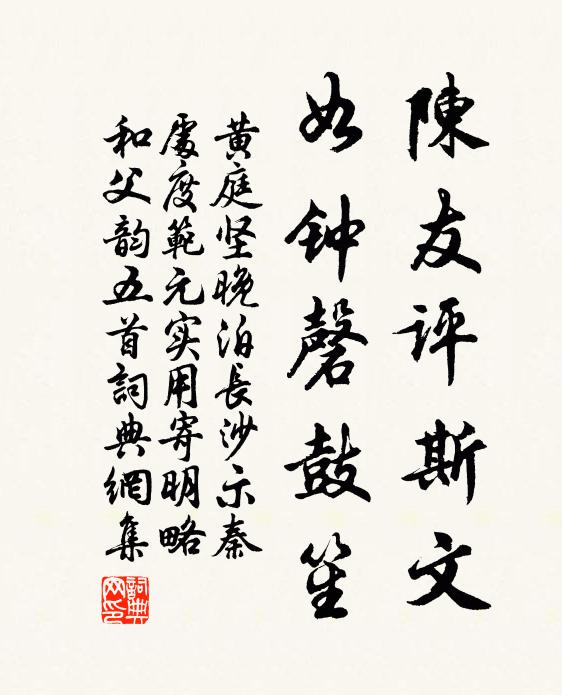 陳友评斯文
如钟磬鼓笙
黄庭坚晚泊長沙示秦
處度範元实用寄明略
和父韵五首詞典網集
詞典網印